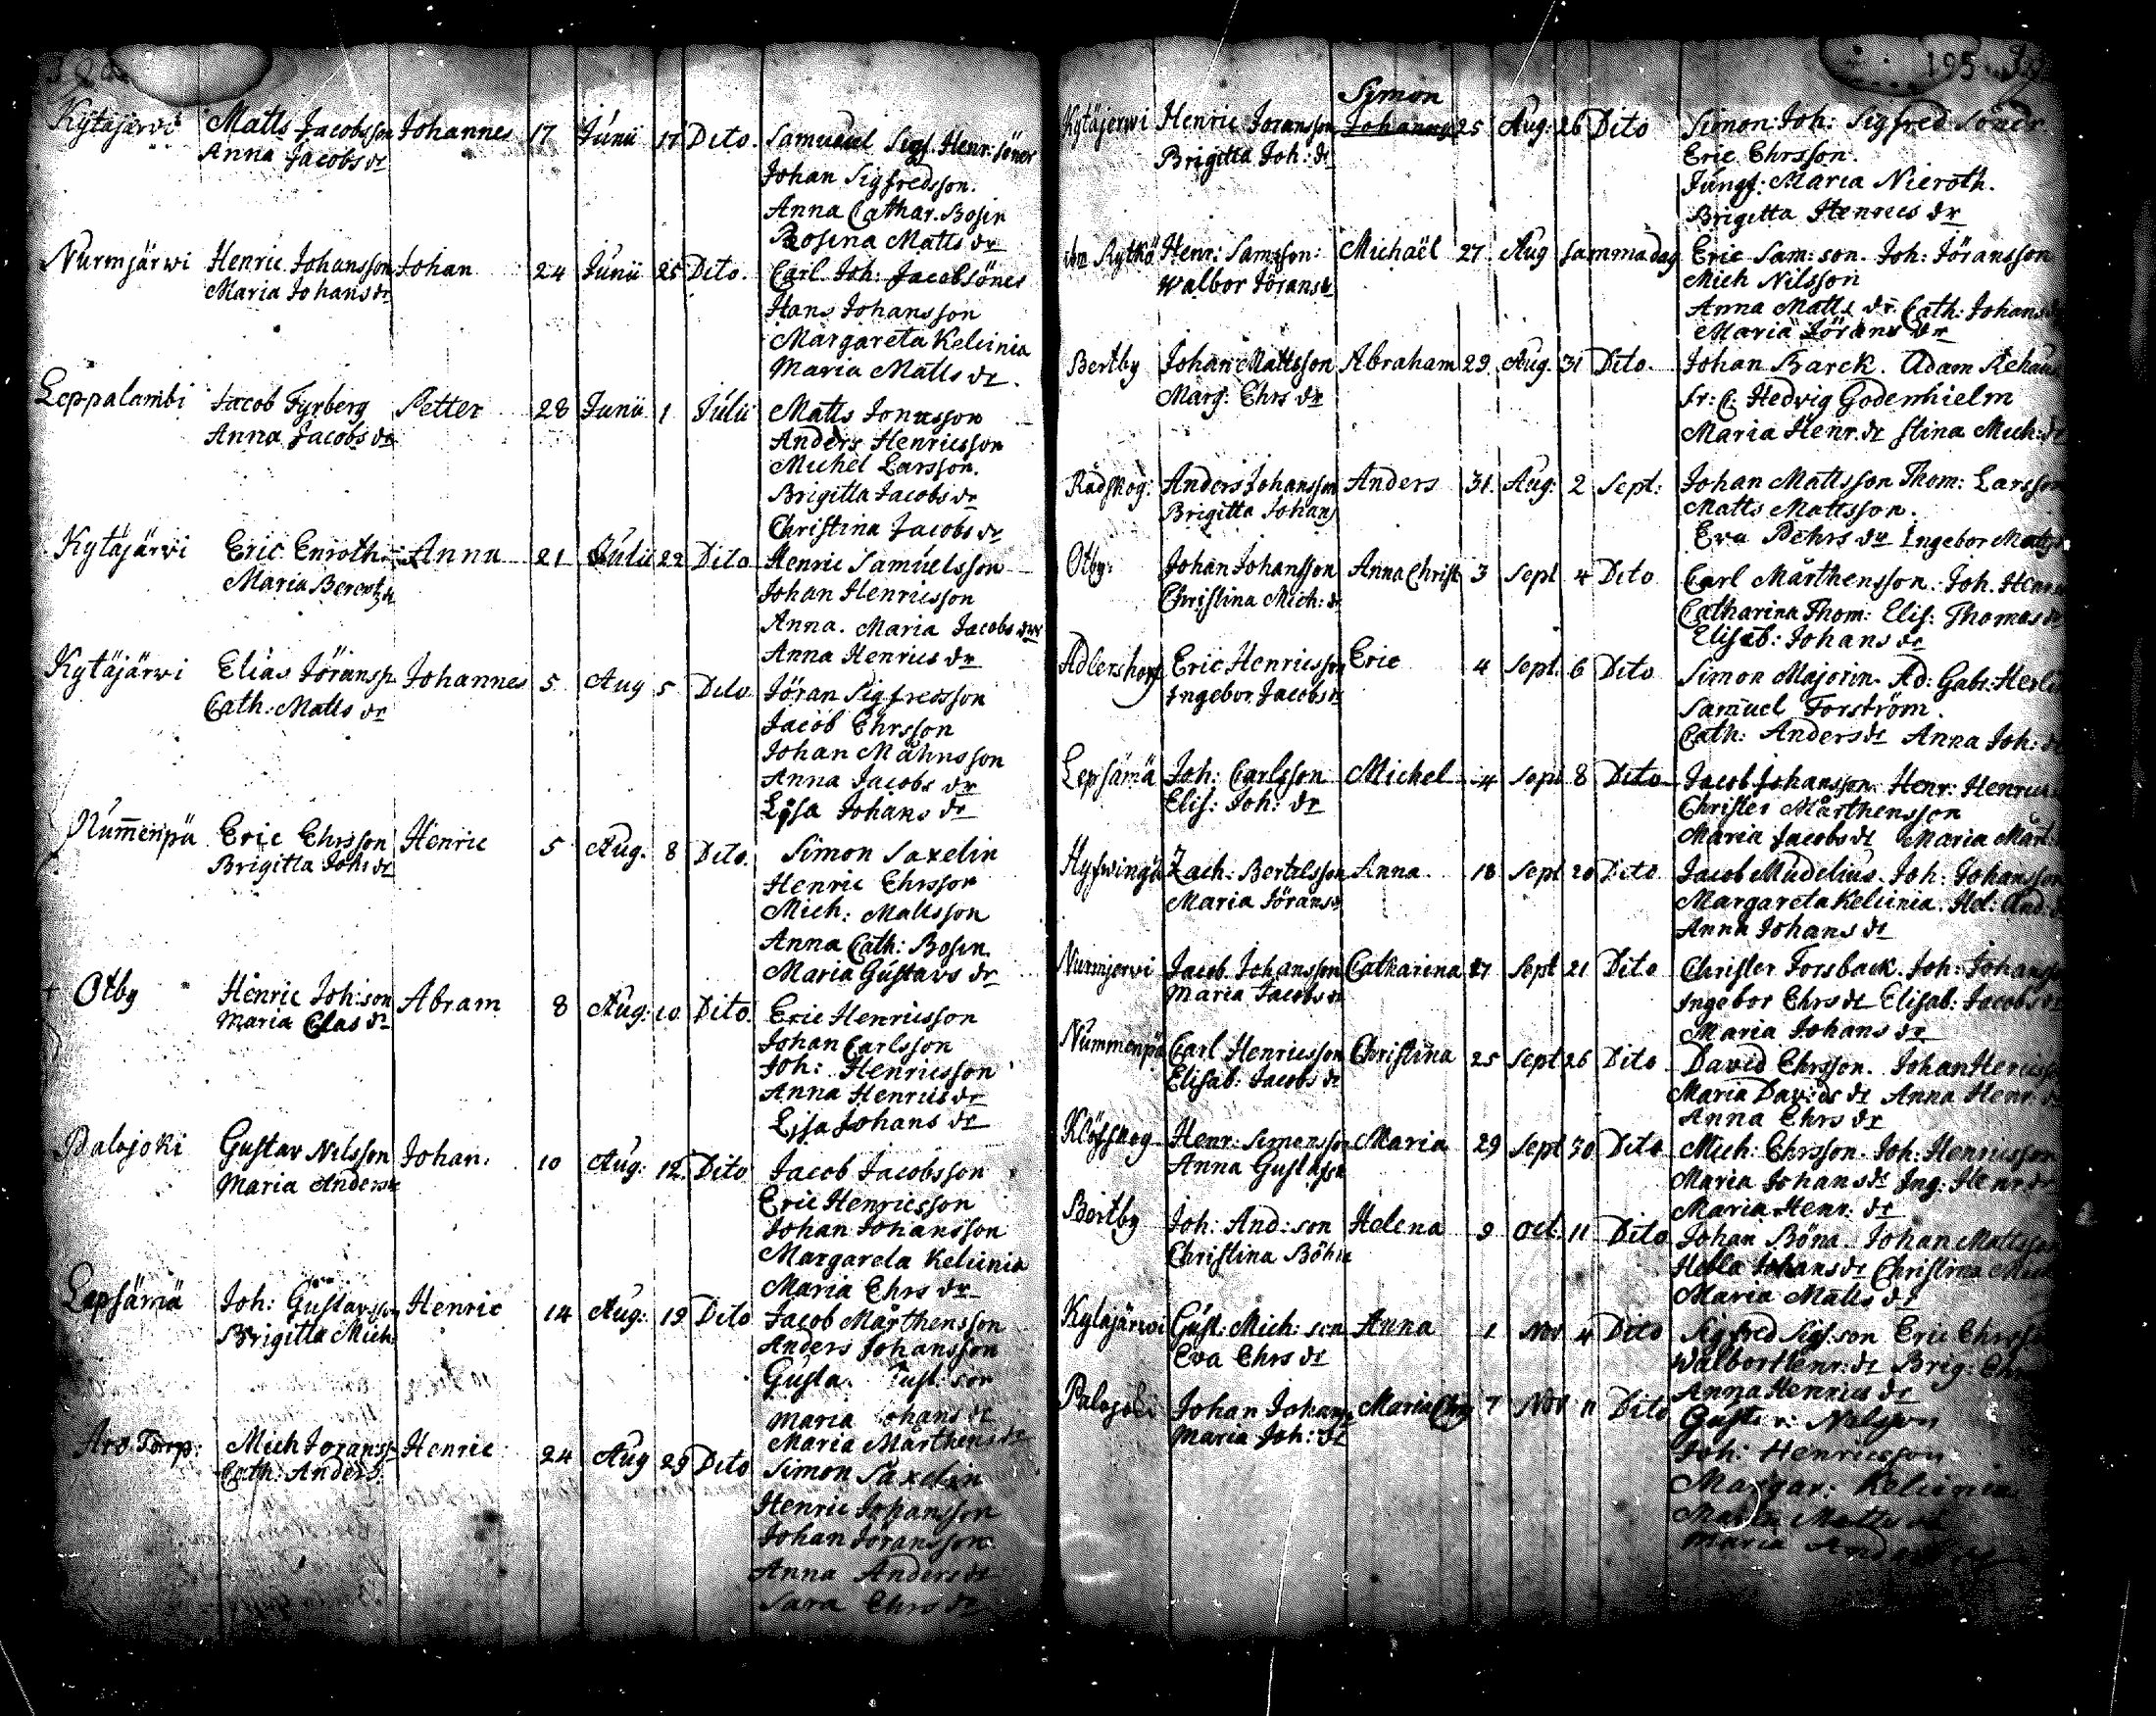 195
Kytäjärvi Matts Jacobsson Johannes 17 Junii 17 Dito. Samuel Sigf. Henr: söner
Anna Jacobs dr Johan Sigfredsson.
Anna Cathar. Bosin
Rosina Matts dr
Nurmjärwi Henric Johansson Johan 24 Junii 25 Dito. Carl Joh: Jacobsöner
Maria Johans dr Hans Johansson
Margareta Kelinia
Maria Matts dr.
Leppalambi Jacob Fyrberg Petter 28 Junii 1 Julii Matts Jonasson
Anna Jacobs dr Anders Henricsson
Michel Larsson.
Brigitta Jacobs dr
Christina Jacobs dr
Kytäjärwi Eric Enroth Anna 21 Julii 22 Dito Henric Samuelsson
Maria Johan Henricsson
Anna. Maria Jacobs drr
Anna Henrics dr
Kytäjärwi Elias Jöranss. Johannes 5 Aug 5 Dito Jöran Sigfredsson
Cath: Matts dr Jacob Ehrsson
Johan
Anna Jacobs dr
Lisa Johans dr
Num̄enpä Eric Ehrsson Henric 5 Aug. 8 Dito. Simon Saxelin
Brigitta Johs dr Henric Ehrsson
Mich: Mattsson
Anna Cath: Bosin.
Maria Gustavs dr
Otby Henric Joh:son Abram 8 Aug: 10 Dito. Eric Henricsson
Maria Clas dr Johan Carlsson
Joh: Henricsson
Anna Henrics dr
Lisa Johans dr
Palojoki Gustav Nilsson Johan. 10 Aug: 12. Dito Jacob Jacobsson
Maria Anders Eric Henricsson
Johan Johansson
Margareta Kelinia
Maria Ehrs dr
Lepsämä Joh: Gustavsson Henric 14 Aug: 19 Dito Jacob Mårthensson
Brigitta Mich Anders Johansson
Gusta. Gust: son
Maria Johans dr
Maria Mårthens dr
Aro Torp: Mich Joranss. Henric 24 Aug 29 Dito Simon Saxelin
Cath: Anders. Henric Johansson
Johan Joransson
Anna Anders dr
Sara Ehrs dr
Symon
Kytäjerwi Henric Joransson Johannes 25 Aug: 26 Dito Simon: Joh: Sigfred Söner
Brigitta Joh: dr Eric Ehrsson.
Jungf: Maria Nieroth.
Brigitta Henrics dr
Henr: Samsson: Michaël 27. Aug samma dag Eric Sam: son. Joh: Jöransson
Walbor Jörans dr Mich Nilsson
Anna Matts dr Cath: Johans
Maria Jörans dr
Bertby Johan Mattsson Abraham 29 Aug. 31 Dito. Johan Barck. Adam
Marg: Ehrs dr Fr: C. Hedvig Godenhielm
Maria Henr. dr Stina Mich: dr
Rådskog: Anders Johansson Anders 31. Aug: 2 Sept: Johan Mattsson Thom: Larsson
Brigitta Johans Matts Mattsson.
Eva Pehrs dr Ingebor Matts
Otby. Johan Johansson Anna Christ 3 Sept 4 Dito Carl Mårthensson. Joh. Henr
Christina Mich: dr Catharina Thom: Elis: Thomas dr
Elisab: Johans dr
Adlershoff Eric Henricsson Eric 4 Sept. 6 Dito Simon Majorin. Ad: Gabr:
Ingebor Jacobs dr Samuel Forström.
Cath: Anders dr Anna Joh: dr
Lepsämä Joh: Carlsson Michel 4 Sept 8 Dito Jacob Johansson Henr: Henrics
Elis: Joh: dr Christer Mårthensson
Maria Jacobs dr Maria Mårt:
Hyfwingä Zach: Bertelsson Anna. 18 Sept 20 Dito Jacob Mudelius. Joh: Johansson
Maria Jörans dr Margareta Kelinia. Hel: And: dr
Anna Johans dr
Nurmjerwi Jacob Johansson Catharina 17 Sept 21 Dito Christer Forsback. Joh: Johansson
Maria Jacobs dr Ingebor Ehrs dr Elisab: Jacobs dr
Maria Johans dr
Nummenpä Carl Henricsson Christina 25 Sept 26 Dito David Ehrsson. Johan Henricss
Elisab: Jacobs dr Maria Davids dr Anna Henr. dr
Anna Ehrs dr
Klöfskog Henr: Simonsson Maria 29 Sept 30 Dito Mich: Ehrsson. Joh: Henricsson
Anna Gustafss Maria Johans dr Ing: Henr: dr
Maria Henr: dr
Bertby Joh: And: son Helena 9 Oct: 11 Dito Johan Böna. Johan Mattsson
Christina Böhn Hella Johans dr Christina Mich
Maria Matts dr
Kytäjärwi Gust: Mich: son Anna 1 Nov 4 Dito Sigfred Sigf. son Eric Ehrsson
Eva Ehrs dr Walbor Henr: dr Brig: Ehr
Anna Henrics dr
Palojoki Johan Johans Maria Chr 7 Nov 11 Dito Gustav: Nilsson
Maria Joh: dr Joh: Henricsson
Margar: Kelinia
Maria Matts dr
Maria Anders dr